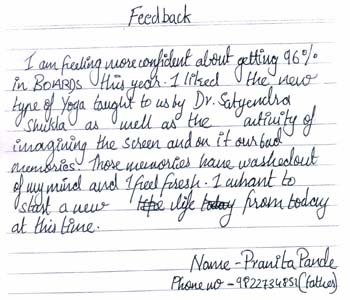 Feedback
I am feeling more confident about getting 96%
in BOARDS this year. I liked the new
type of Yoga taught to us by Dr. Satyendra
Shukla as well as the activity of
imagining the screen and on it our bad
memories. Those memories have washed out
of my mind and I feel fresh. I want to
start a new life from today
at this time.
Name - Pranita Pande
Phone no - 9822734851 (father)